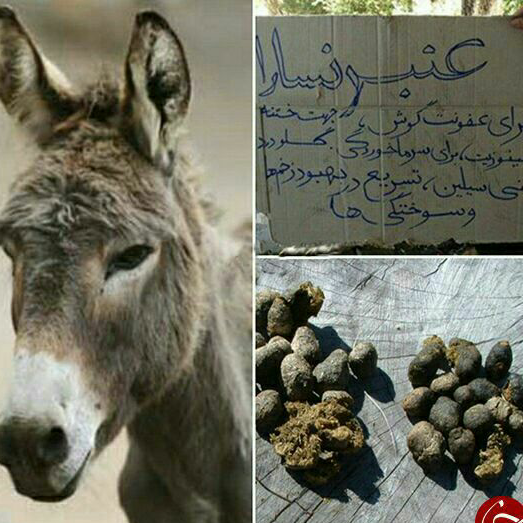 عنبر نسارا
برای عفونت گوش، جهت خفته
سینوزیت، برای سرماخوردگی گلو درد
پنی سیلین، تسریع در بهبود زخم‌ها
و سوختگی ها